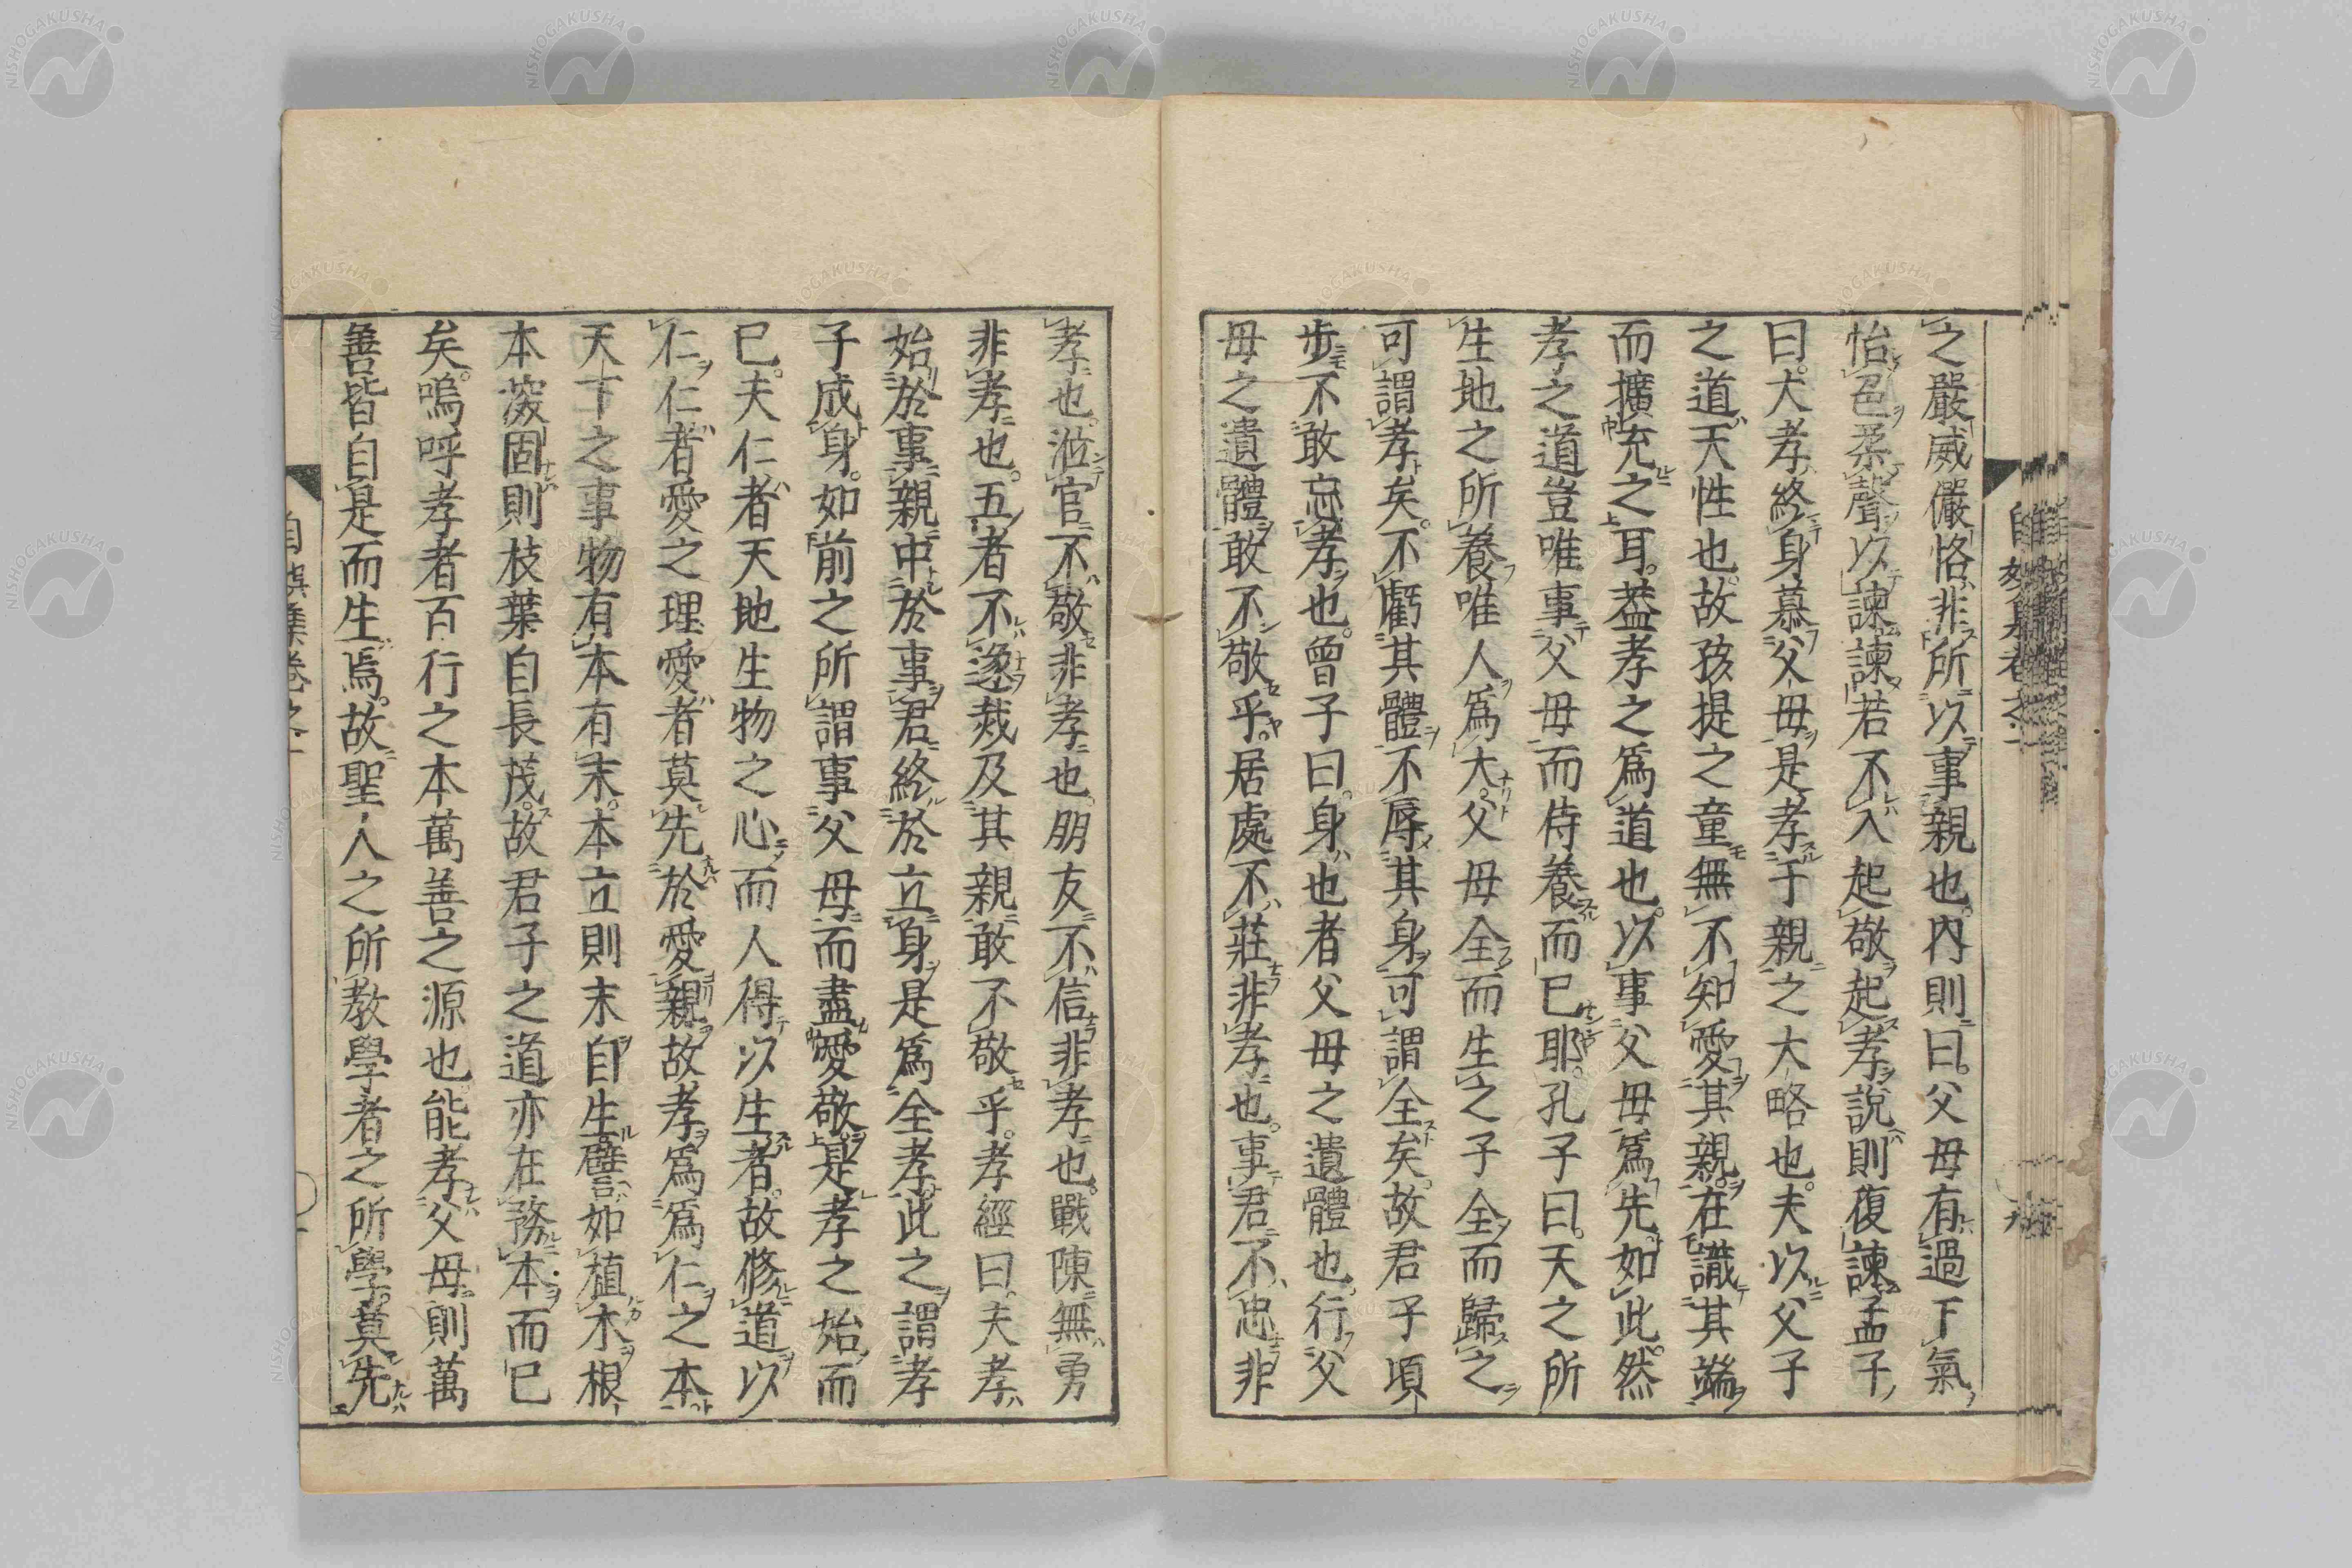 之嚴威儼恪非所以事親也。內則曰。父母有過下氣
怡色柔聲以諫諫若不入起敬起孝說則復諫孟子
曰。大孝終身慕父母是孝于親之大略也。夫以父子
之道天性也。故孩提之童無不知愛其親。在識其端
而擴充之耳。葢孝之爲道也。以事父母爲先。如此。然
孝之道豈唯事父母而侍養而已耶。孔子曰。天之所
生地之所養唯人爲大。父母全而生之子全而歸之
可謂孝矣。不虧其體不辱其身可謂全矣。故君子頃
步不敢忘孝也。曾子曰。身也者父母之遺體也。行父
母之遺體敢不敬乎。居處不莊非孝也。事君不忠非
孝也。涖官不敬非孝也。朋友不信非孝也。戰陳無勇
非孝也。五者不遂烖及其親敢不敬乎。孝經曰。夫孝
始於事親中於事君終於立身是爲全孝。此之謂孝
子成身。如前之所謂事父母而盡愛敬是孝之始而
已。夫仁者天地生物之心而人得以生者。故修道以
仁仁者愛之理愛者莫先於愛親故孝爲爲仁之本
天下之事物有本有末。本立則末自生譬如植木根
本深固則枝葉自長茂。故君子之道亦在務本而已
矣。嗚呼孝者百行之本萬善之源也能孝父母則萬
善皆自是而生焉。故聖人之所教學者之所學。莫先
NISHOGAKUSHA